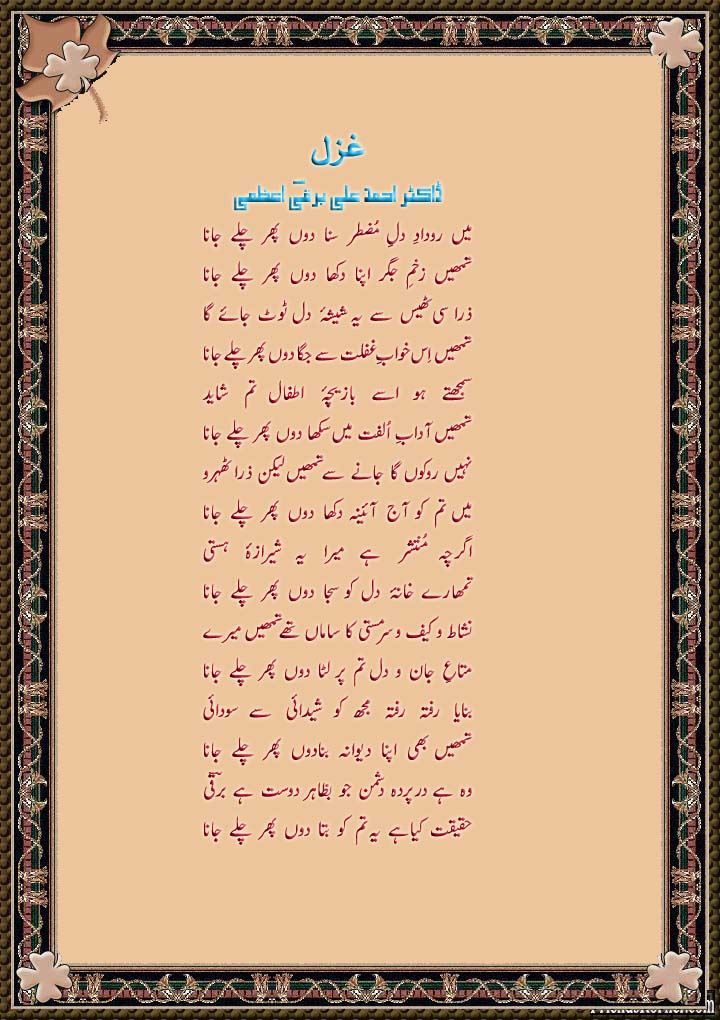 غزل
ڈاکٹر احمد علی برقیؔ اعظمی
میں رودادِ دلِ مُضطر سنا دوں پھر چلے جانا
تمھیں زخمِ جگر اپنا دکھا دوں پھر چلے جانا
ذرا سی ٹھیس سے یہ شیشۂ دل ٹوٹ جائے گا
تمھیں اِس خوابِ غفلت سے جگا دوں پھر چلے جانا
سمجھتے ہو اسے بازیچۂ اطفال تم شاید
تمھیں آدابِ اُلفت میں سکھا دوں پھر چلے جانا
نہیں روکوں گا جانے سے تمھیں لیکن ذرا ٹھہرو
میں تم کو آج آئینہ دکھا دوں پھر چلے جانا
اگرچہ مُنتشر ہے میرا یہ شیرازۂ ہستی
تمھارے خانۂ دل کو سجا دوں پھر چلے جانا
نشاط و کیف و سرمستی کا ساماں تھے تمھیں میرے
متاعِ جان و دل تم پر لٹا دوں پھر چلے جانا
بنایا رفتہ رفتہ مجھ کو شیدائی سے سودائی
تمھیں بھی اپنا دیوانہ بنادوں پھر چلے جانا
وہ ہے درپردہ دشمن جو بظاہر دوست ہے برقیؔ
حقیقت کیا ہے یہ تم کو بتا دوں پھر چلے جانا